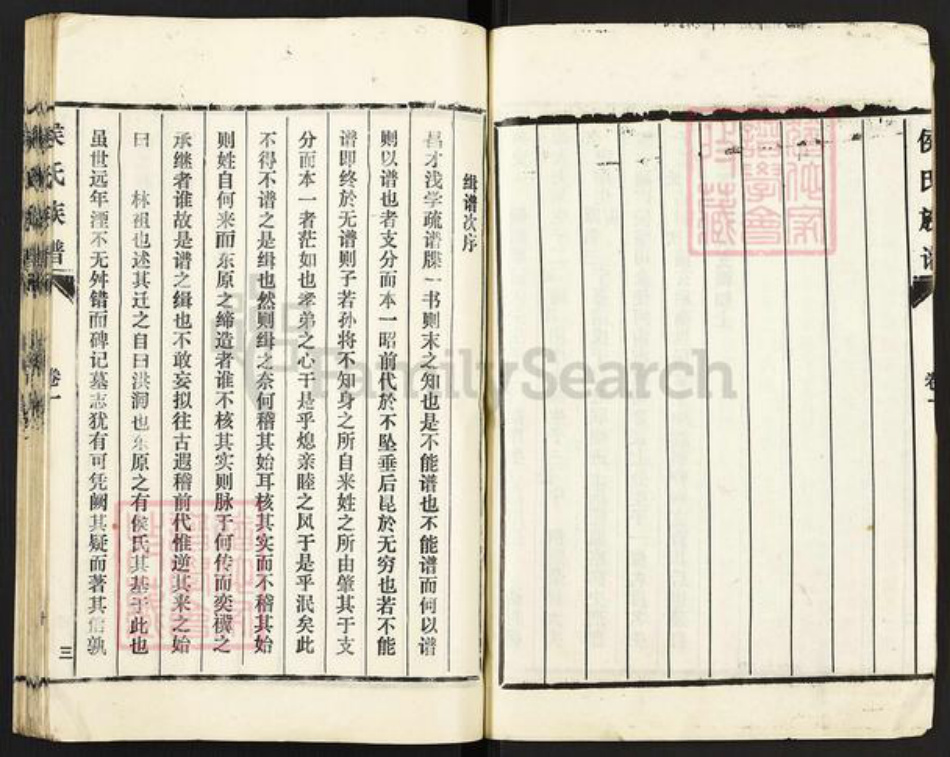 侯氏族谱
卷一
缉谱次序
昌才浅学疏谱牒一书则末之知也是不能谱也不能谱而何以谱
则以谱也者支分而本一昭前代於不坠垂后昆於无穷也若不能
谱即终於无谱则子若孙将不知身之所自来姓之所由肇其于支
分而本一者茫如也孝弟之心于是乎熄亲睦之风于是乎泯矣此
不得不谱之是缉也然则缉之奈何稽其始耳核其实而不稽其始
则姓自何来而东原之缔造者谁不核其实则脉于何传而奕襆之
承继者谁故是谱之缉也不敢妄拟往古遐稽前代惟逆其来之始
曰 林祖也述其迁之自曰洪洞也东原之有侯氏其基于此也
虽世远年湮不无舛错而碑记墓志犹有可凭阙其疑而著其信孰
侯氏族谱
卷一
三
FamilySearch